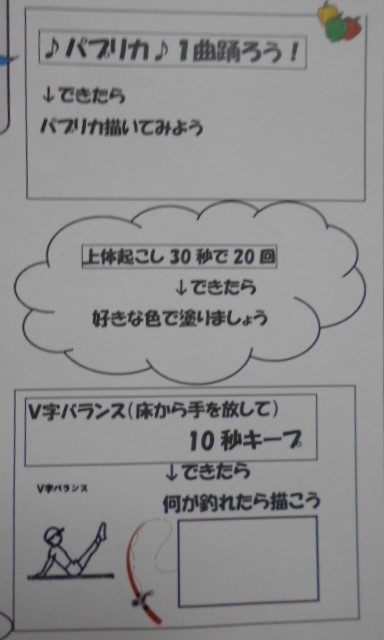 ♪パプリカ♪1曲踊ろう!
↓できたら
パプリカ描いてみよう
上体起こし30秒で20回
↓できたら
好きな色で塗りましょう
V字バランス(床から手を放して)
10秒キープ
↓できたら
V字バランス
何が釣れたら描こう